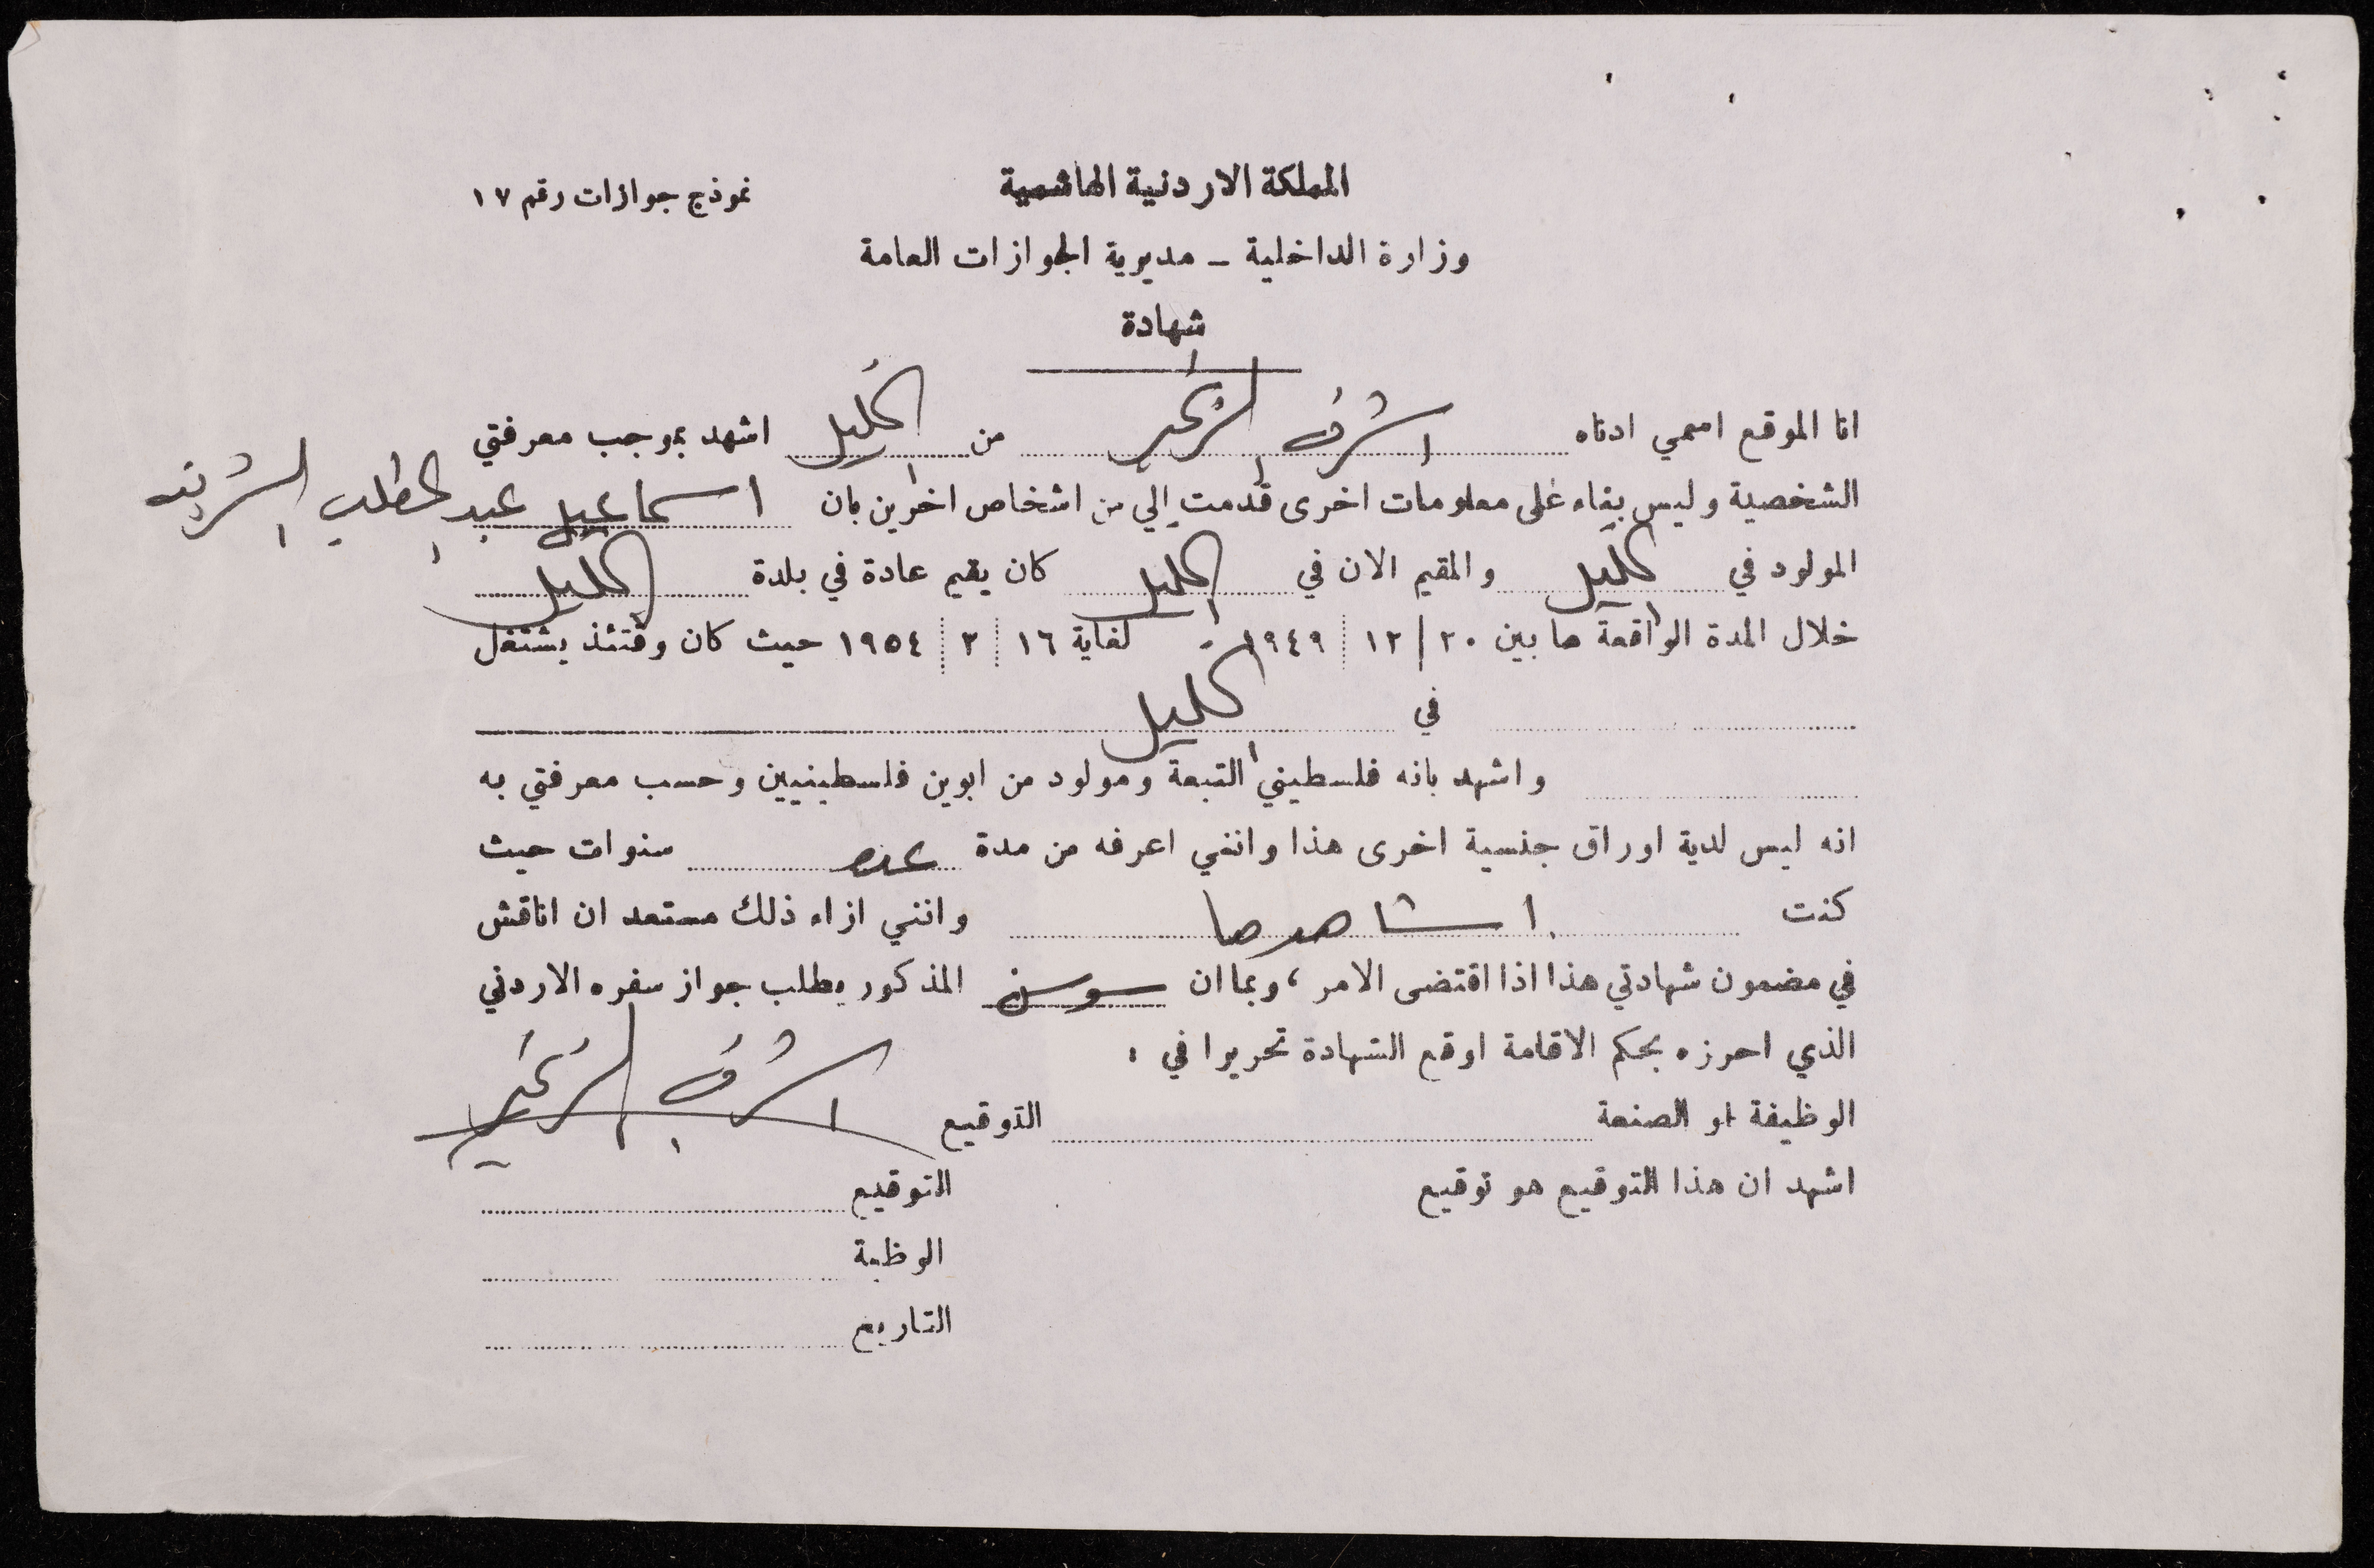 المملكة الاردنية الهاشمية
نموذج جوازات رقم ١٧
وزارة الداخلية - مديرية الجوازات العامة
شهادة
انا الموقع اسمي ادناه اشرف من الخليل اشهد بموجب معرفتي
الشخصية وليس بناء على معلومات اخرى قدمت إلي من اشخاص اخرين بان اسماعيل عبد المطلب الشريف
المولود في الخليل والمقيم الان في الخليل كان يقيم عادة في بلدة الخليل
خلال المدة الواقعة ما بين ٢٠ / ١٢ / ١٩٤٩ لغاية ١٦ / ٢ / ١٩٥٤ حيث كان وقتئذ يشتغل
في الخليل
واشهد بانه فلسطيني التبعة ومولود من ابوين فلسطينيين وحسب معرفتي به
انه ليس لدية اوراق جنسية اخرى هذا وانني اعرفه من مدة عده سنوات حيث
كنت اشاهدها وانني ازاء ذلك مستعد ان اناقش
في مضمون شهادتي هذا اذا اقتضى الامر ، وبما ان سوسن المذكور يطلب جواز سفره الاردني
الذي احرزه بحكم الاقامة اوقع الشهادة تحريرا في :
الوظيفة او الصنعة التوقيع اشرف
اشهد ان هذا التوقيع هو توقيع التوقيع
الوظبة
التاريخ